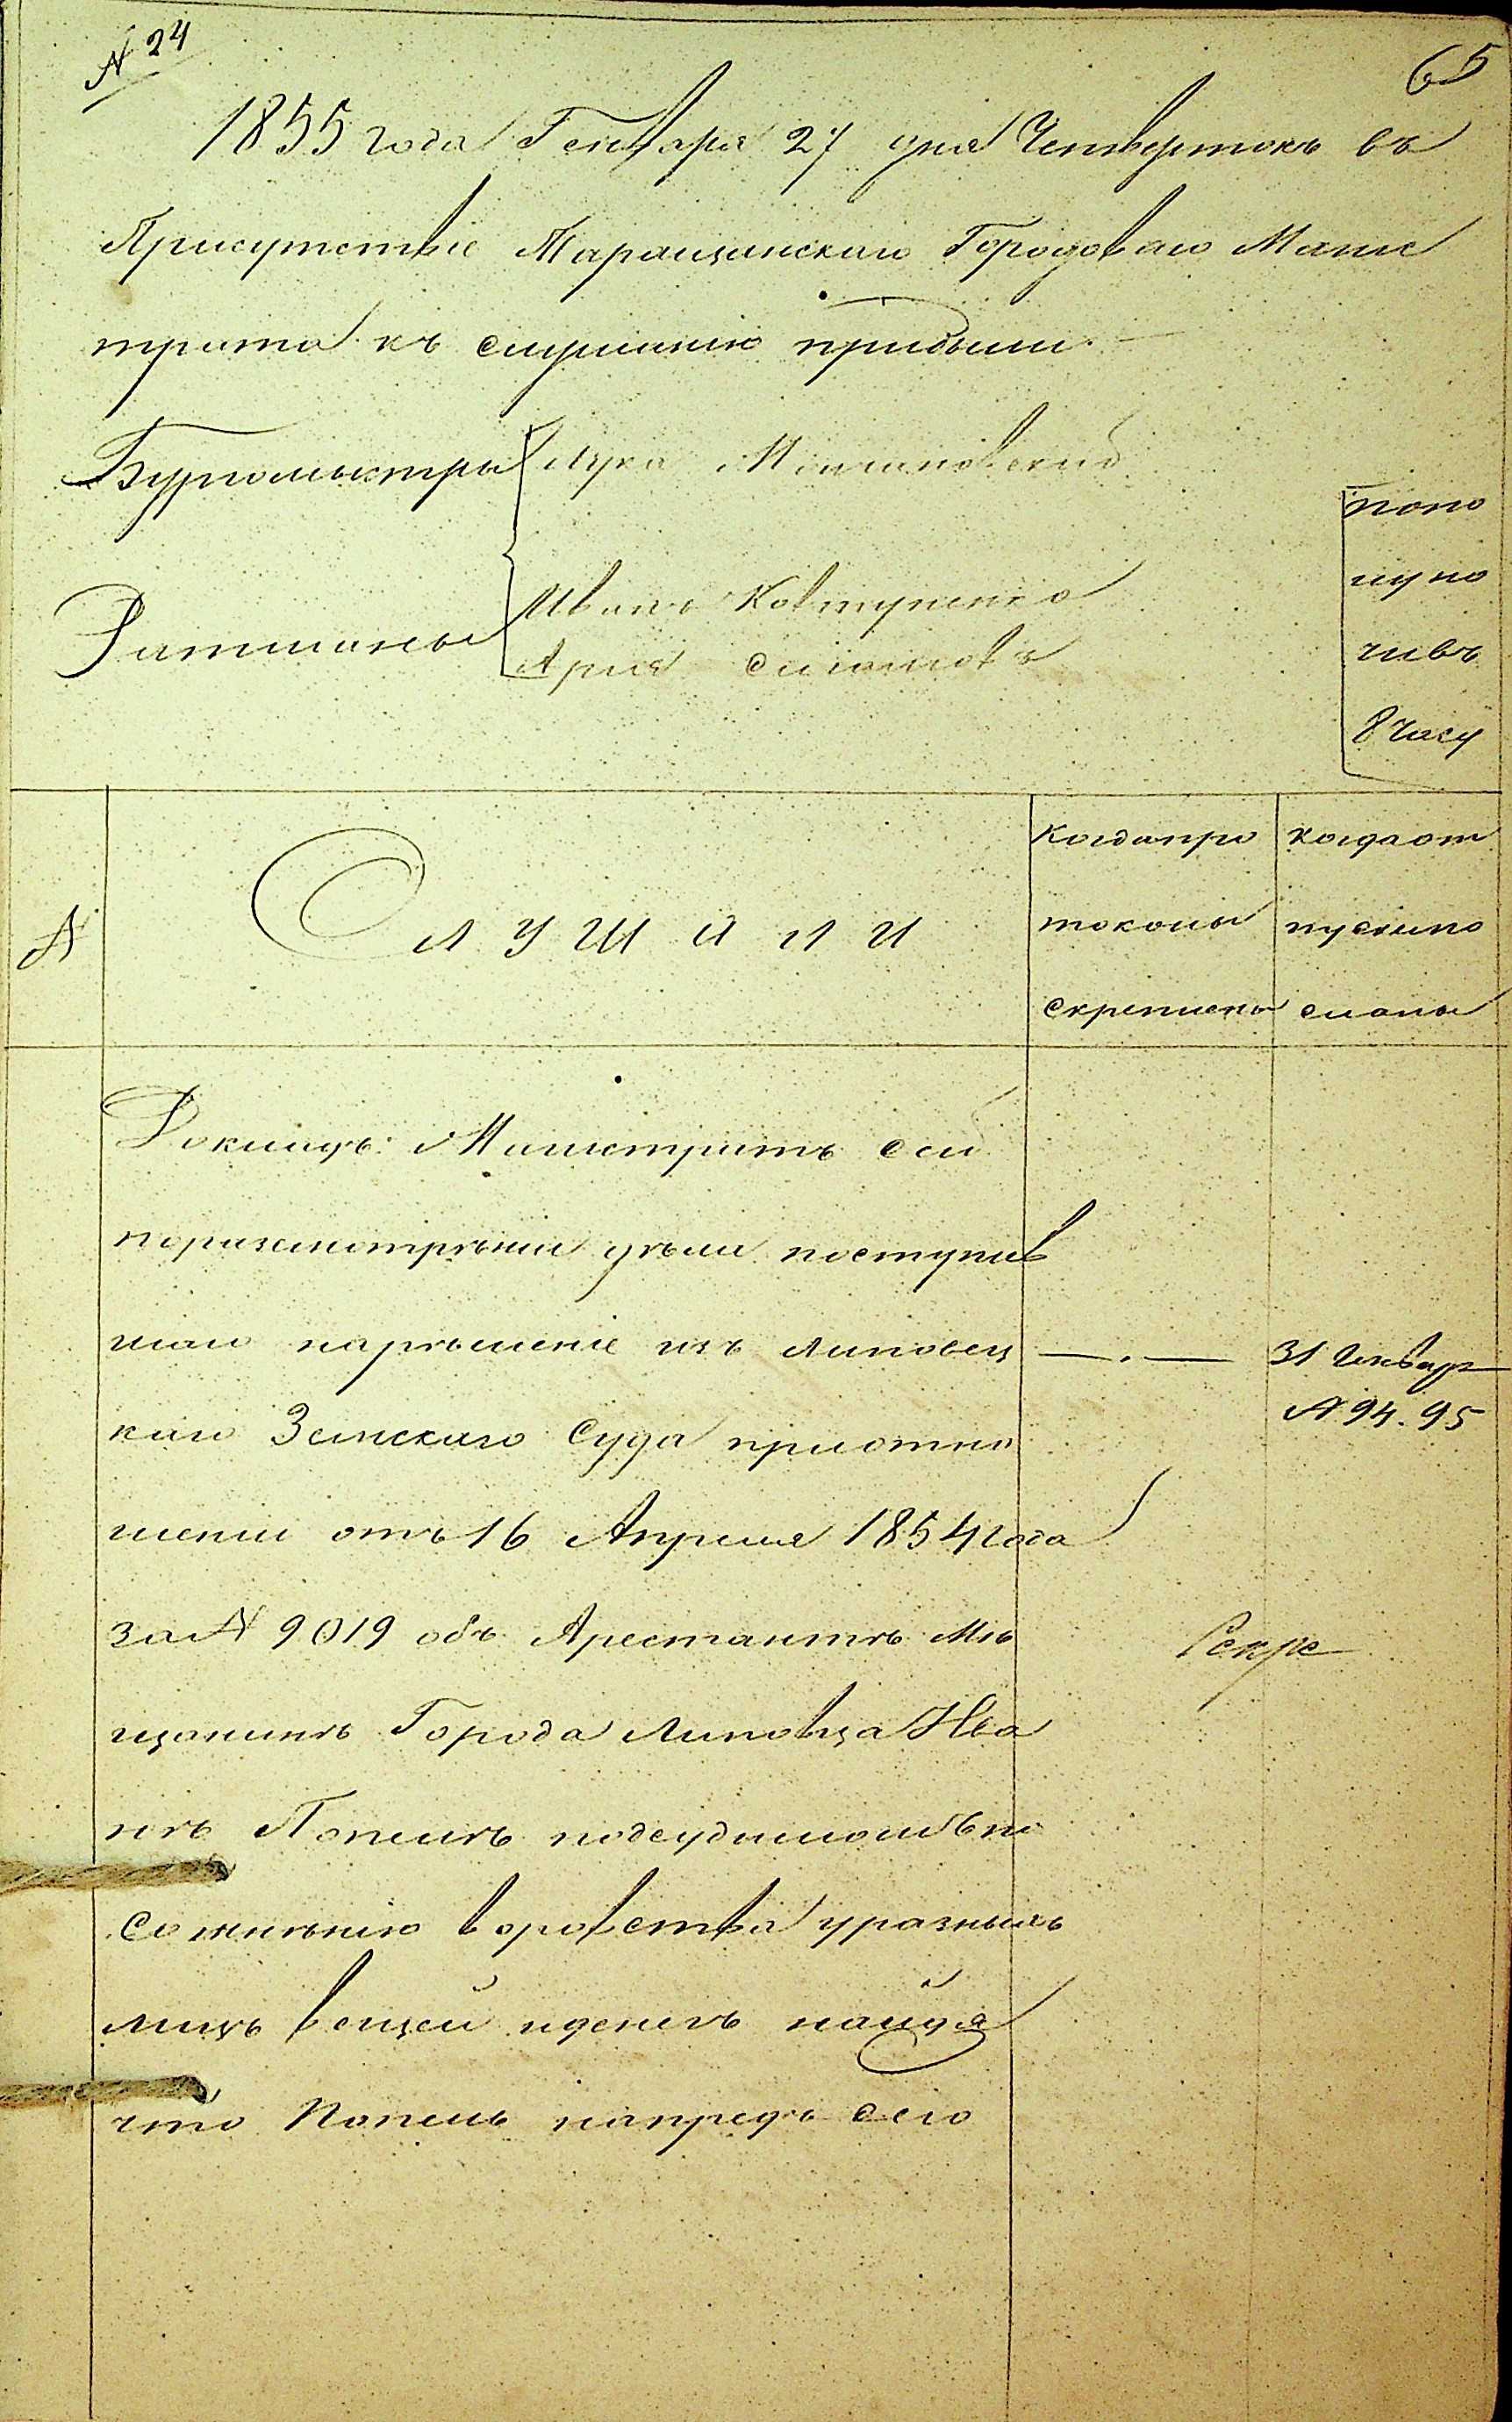 № 24
65
1855 года Генваря 27 дня Четвертокъ въ
Присутствіе Таращанскаго Городоваго Магис
трата къ слушанію прибыли
Бургомистры Лука
Ратманы Иванъ Ковтуненко
Арія
попо
лупо
чивъ
8 часу
№
Слушали
Когда про
токолы
скреплены
когда от
пуски по
сланы
Докладъ: Магистратъ сей
поразсмотрѣніи дѣла поступив
шаго нарѣшеніе изъ Липовец
каго Земскаго Суда приотно
шеніи отъ 16 Апреля 1854 года
за № 9019 объ Арестантѣ Мѣ
щанинѣ Города Липовца Ива
нѣ Попелѣ подсудимомъ по
сомнѣнію воровства уразныхъ
лицъ вещей иденегъ найдя
что Попель напредъ сего
— . —
31 Генваря
№ 94. 95
Секре